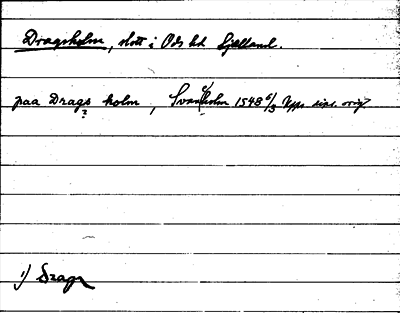 Dragsholm, slott i Ods hd Sjælland.
paa Drags holm, Svanholm 1548 6/3 Upps dipl. orig.
?
1) Dragx